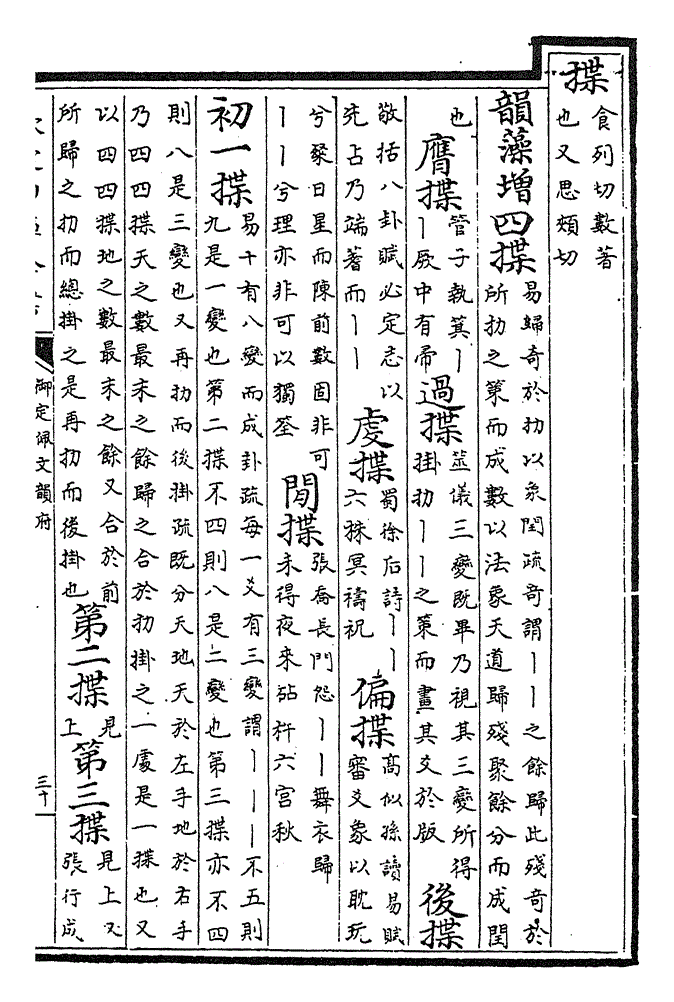 揲食列切數蓍
也又思頰切
韻藻增四揲易歸奇於扐以象閏疏奇謂丨丨之餘歸此殘奇於
所扐之策而成數以法象天道歸殘聚餘分而成閏
也膺揲管子執箕丨
丨厥中有帚過揲筮儀三變既畢乃視其三變所得
掛扐丨丨之策而畫其爻於版後揲
敬括八卦賦必定志以
兖占乃端蓍而丨丨虔揲蜀徐后詩丨丨
六銖冥禱祝偏揲高似孫讀易賦
審爻象以耽玩
兮聚日星而陳前數固非可
丨丨兮理亦非可以獨筌閒揲張喬長門怨丨丨舞衣歸
未得夜来砧杵六宮秋
初一揲易十有八變而成卦疏每一爻有三變謂丨丨丨不五則
九是一變也第二揲不四則八是二變也第三揲亦不四
則八是三變也又再扐而後掛疏既分天地天於左手地於右手
乃四四揲天之數最末之餘歸之合於扐掛之一處是一揲也又
以四四揲地之數最末之餘又合於前
所歸之扐而總掛之是再扐而後掛也第二揲見
上第三揲見上又
張行成
御定佩文韻府
三十